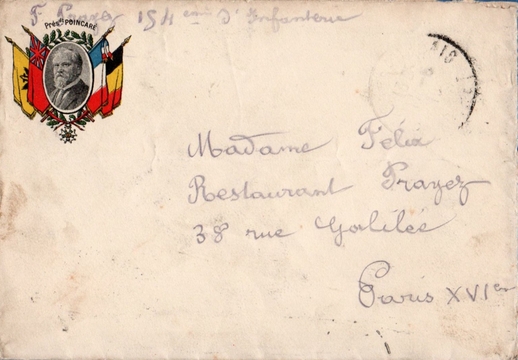 F. Prayez 154 ème d'Infanterie
Prés.t POINCARÉ
Madame Félix
Restaurant Prayez
38 rue Galilée
Paris XVIe